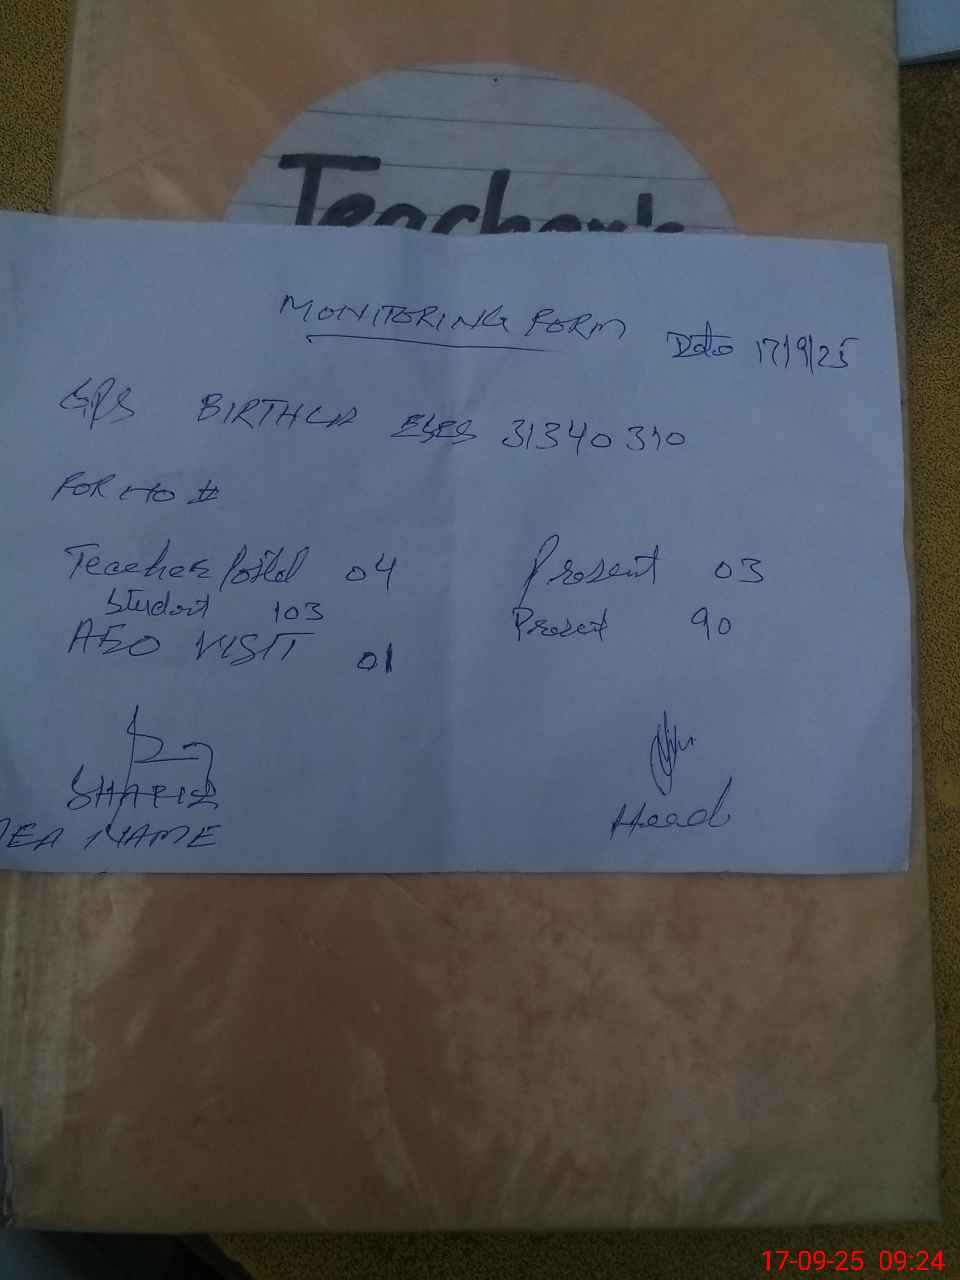 Teacher's
MONITORING FORM
Date 17/9/25
GPS BIRTHLA 31340310
FOR MO #
Teacher Posted 04 Present 03
Student 103 Present 90
AEO VISIT 01
Head
MEA NAME
17-09-25 09:24